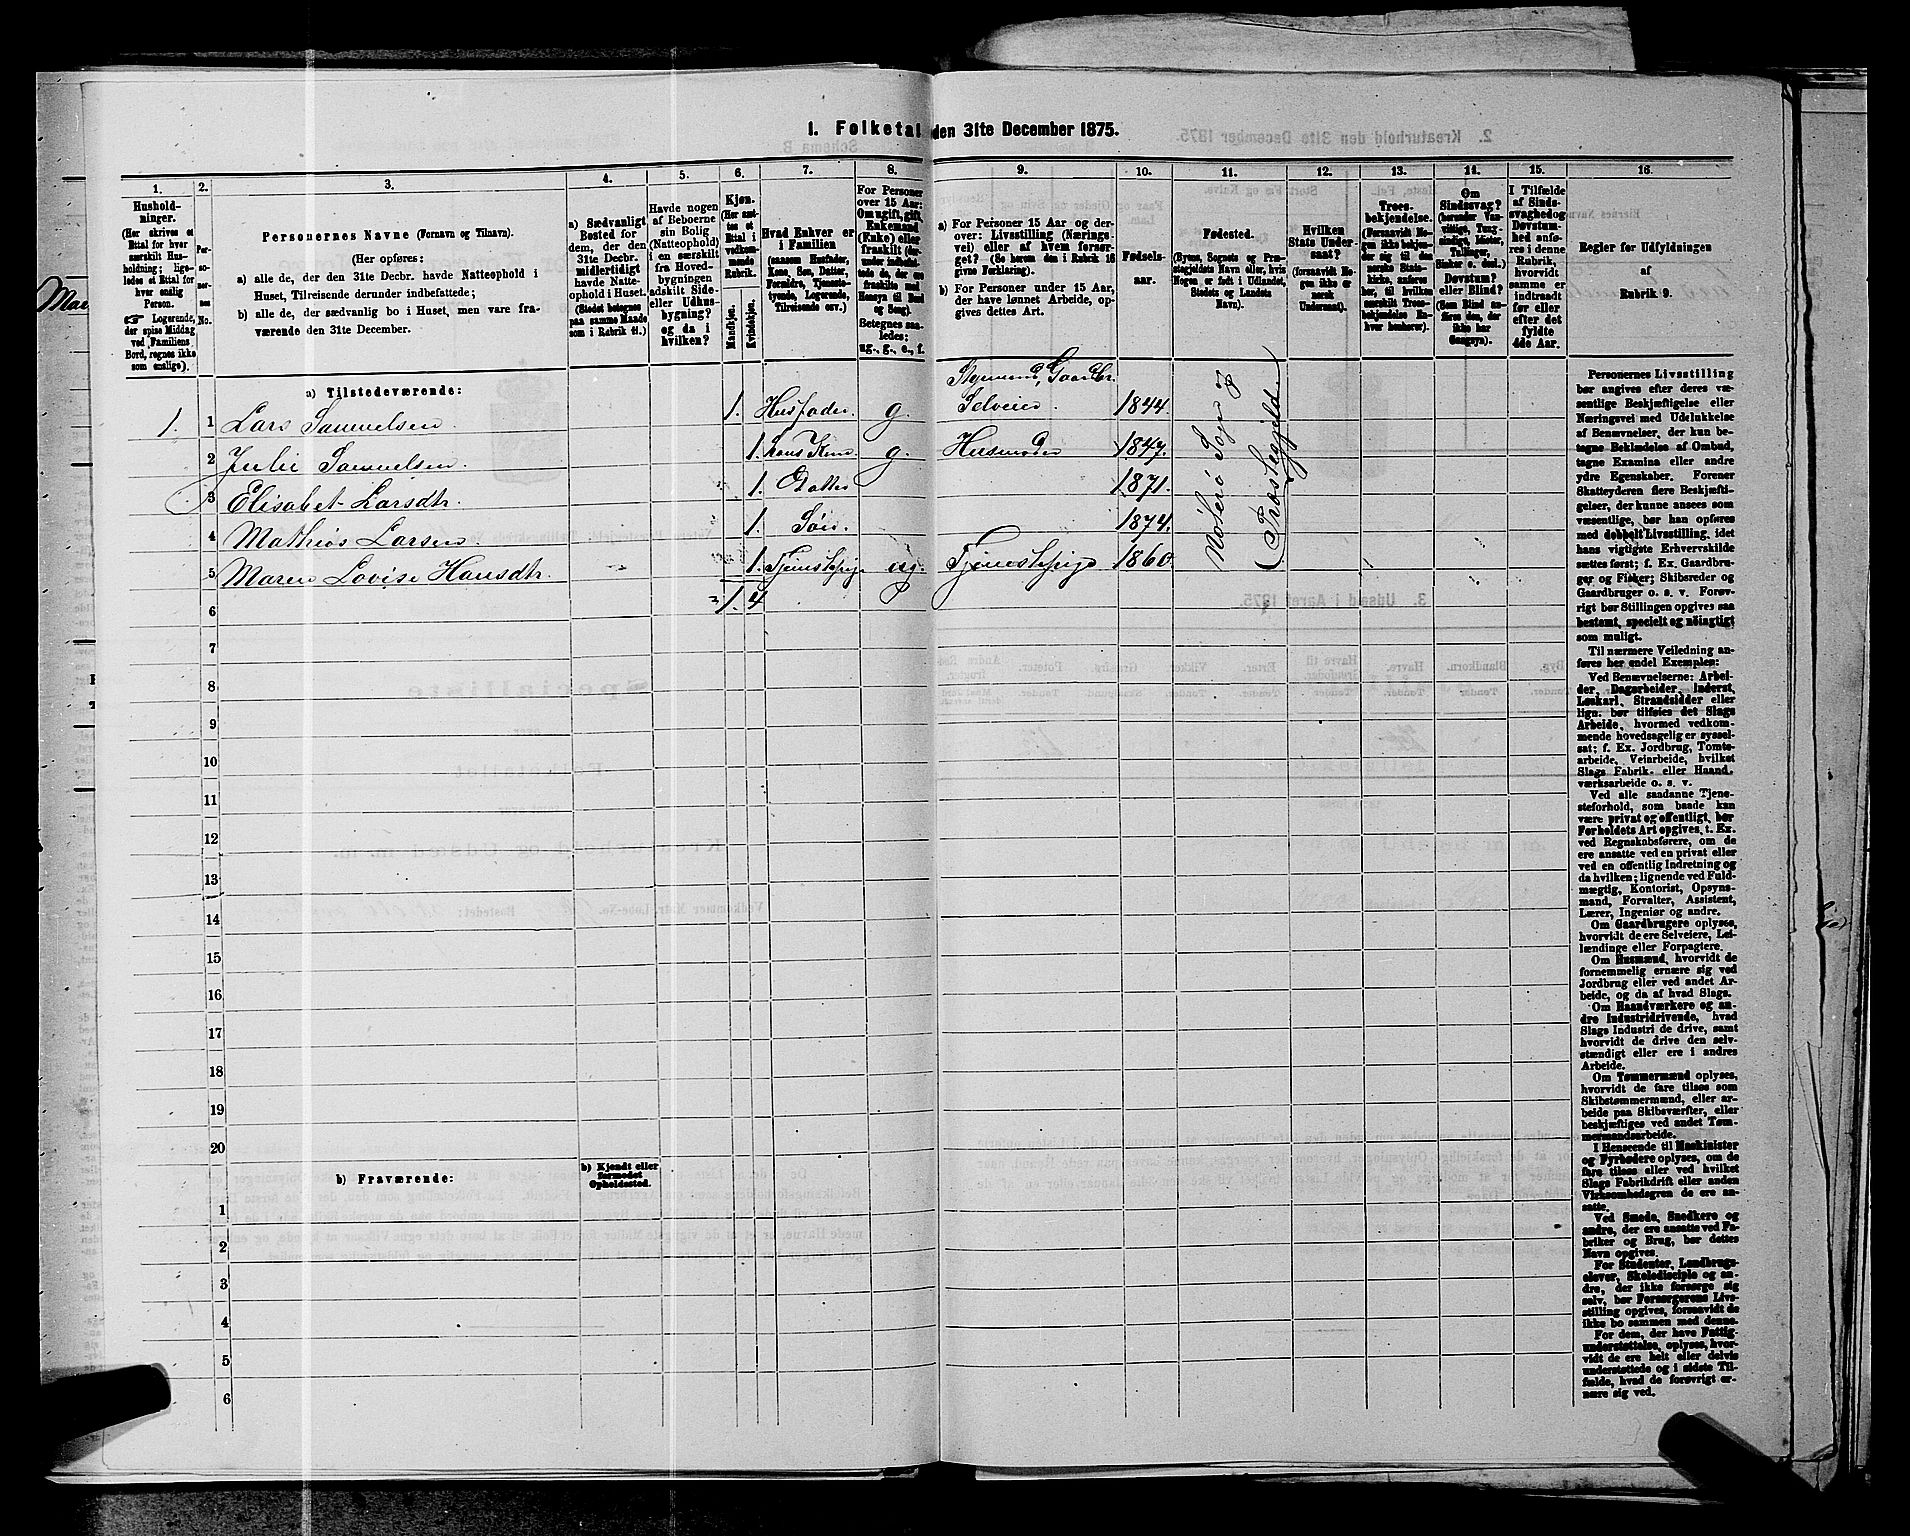 1. Folketal den 31te December 1875.
1.
Hushold-
ninger.
(Her skrives et
Ettal for hver
særskilt Hus-
holdning; lige-
ledes et Ettal for
hver enslig
Person.
Logerende,
der spise Middag
ved Familiens
Bord, regnes ikke
som enslige).
2.
Per-
so-
ner-
nes
No.
3.
Personernes Navne (Fornavn og Tilnavn).
(Her opføres:
a) alle de, der den 31te Decbr. havde Natteophold i
Huset, Tilreisende derunder indbefattede;
b) alle de, der sædvanlig bo i Huset, men vare fra-
værende den 31te December.
4.
a) Sædvanligt
Bosted for
dem, der den
31te Decbr.
midlertidigt
havde Natte-
ophold i Huset.
(Stedet betegnes
paa samme Maade
som i Rubrik 11.)
5.
Havde nogen
af Beboerne
sin Bolig
(Natteophold)
i en særskilt
fra Hoved-
bygningen
adskilt Side-
eller Udhus-
bygning?
og da i
hvilken?
6.
Kjøn.
(Her sæt-
tes et
Ettal i
vedkom-
mende
Rubrik.
Mandkjøn.
Kvindekjøn.
7.
Hvad Enhver er
i Familien
(saasom Husfader,
Kone, Søn, Datter,
Forældre, Tjeneste-
tyende, Logerende,
Tilreisende osv.)
8.
For Personer
over 15 Aar:
Om ugift, gift,
Enkemand
(Enke) eller
fraskilt
Betegnes saa-
ledes:
ug., g., e., f.
9.
a) For Personer 15 Aar og der-
over: Livsstilling (Nærings-
vei) eller af hvem forsør-
get? (Se herom den i Rubrik 16
givne Forklaring).
b) For Personer under 15 Aar,
der have lønnet Arbeide, op-
gives dettes Art.
10.
Fødsels-
aar.
11.
Fødested.
(Byens, Sognets og Præ-
stegjeldets Navn eller, hvis
Nogen er født i Udlandet,
Stedets og Landets
Navn).
12.
Hvilken
Stats Under-
saat?
(forsaavidt No-
gen ikke er
norsk
Undersaat).
13.
Troes-
bekjendelse.
(Forsaavidt No-
gen ikke bekjen-
der sig til den
norske Stats-
kirke, anføres
her, til hvilken
særskilt Troes-
bekjendelse En-
hver henhører).
14.
Om
Sindssvag?
(herunder Van-
vittige, Tung-
sindige, Idioter,
Tullinger,
Sinker o. desl.)
Døvstum?
eller Blind?
(Som Blind an-
føres den, der
ikke har
Gangsyn).
15.
I Tilfælde
af Sinds-
svaghed og
Døvstum-
hed anfø-
res i denne
Rubrik,
hvorvidt
samme er
indtraadt
før eller
efter det
fyldte
4de Aar.
16.
Regler for Udfyldningen
af
Rubrik 9.
a) Tilstedeværende:
1. 1 Lars Samuelsen 1. Husfader g. Styrmand, Gaardbr. Selveier 1844
2 Julie Samuelsen. 1. hans Kone g. Husmoder 1847.
3 Elisabet Larsdtr. 1. Datter 1871.
4 Mathias Larsen. 1. Søn. 1874.
5 Maren Lovise Hansdtr. 1. Tjenestepige ug. Tjenestepige 1860
Nøterø Sogn &
Præstegjeld.
6 1. 4
7
8
9
10
11
12
13
14
15
16
17
18
19
20
b) Fraværende:
b) Kjendt eller
formodet
Opholdssted.
1
2
3
4
5
6
Personernes Livsstilling
bør angives efter deres væ-
sentlige Beskjæftigelse eller
Næringsvei med Udelukkelse
af Benævnelser, der kun be-
tegne Beklædelse af Ombud,
tagne Examina eller andre
ydre Egenskaber. Forener
Skatteyderen flere Beskjæfti-
gelser, der kunne ansees som
væsentlige, bør han opføres
med dobbelt Livsstilling, idet
hans vigtigste Erhvervskilde
sættes først; f. Ex. Gaardbru-
ger og Fisker; Skibsreder og
Gaardbruger o. s. v. Forøv-
rigt bør Stillingen opgives saa
bestemt, specielt og nöiagtigt
som muligt.
Til nærmere Veiledning an-
føres her endel Exempler:
Ved Benævnelserne: Arbei-
der, Dagarbeider, Inderst,
Løskarl, Strandsidder eller
lign. bør tilføies det Slags
Arbeide, hvormed vedkom-
mende hovedsagelig er syssel-
sat; f. Ex. Jordbrug, Tomte-
arbeide, Veiarbeide, hvilket
Slags Fabrik- eller Haand-
værksarbeide o. s. v.
Ved alle saadanne Tjene-
steforhold, som baade kan
være privat og offentligt, bør
Forholdets Art opgives, t. Ex.
ved Regnskabsførere, om de
ere ansatte ved en privat eller
ved en offentlig Indretning og
da hvilken; lignende ved Fuld-
mægtig, Kontorist, Opsyns-
mand, Forvalter, Assistent,
Lærer, Ingeniør og andre.
Om Gaardbrugere oplyses,
hvorvidt de ere Selveiere, Lei-
lændinge eller Forpagtere.
Om Husmænd, hvorvidt de
fornemmelig ernære sig ved
Jordbrug eller ved andet Ar-
beide, og da af hvad Slags.
Om Haandværkere og an-
dre Industridrivende, hvad
Slags Industri de drive, samt
hvorvidt de drive den selv-
stændigt eller ere i andres
Arbeide.
Om Tømmermænd oplyses,
hvorvidt de fare tilsøs som
Skibstømmermænd, eller ar-
beide paa Skibsværfter, eller
beskjæftiges ved andet Tøm-
mermandsarbeide.
I Henseende til Maskinister
og Fyrbødere oplyses, om de
fare tilsøs eller ved hvilket
Slags Fabrikdrift eller anden
Virksomhedsgren de ere an-
satte.
Ved Smede, Snedkere og
andre, der ere ansatte ved Fa-
briker og Brug, bør dettes
Navn opgives.
For Studenter, Landbrugs-
elever, Skoledisciple og an-
dre, der ikke forsørge sig
selv, bør Forsørgerens Livs-
stilling opgives, forsaavidt de
ikke bo sammen med denne.
For dem, der have Fattig-
understøttelse, oplyses, hvor-
vidt de ere helt eller delvis
understøttede og i sidste Til-
fælde, hvad de forøvrigt er-
nære sig ved.